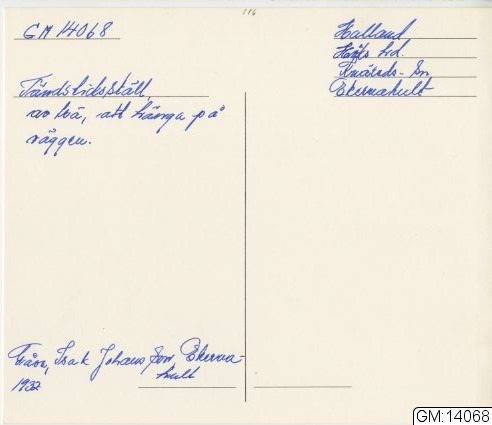 116
GM 14068
Halland
Höks hd.
Knäreds- Sn
Ekernahult
Tändsticksställ,
av trä, att hänga på
väggen.
Gåva, Isak Johansson Ekerna-
hult
1932
GM:14068